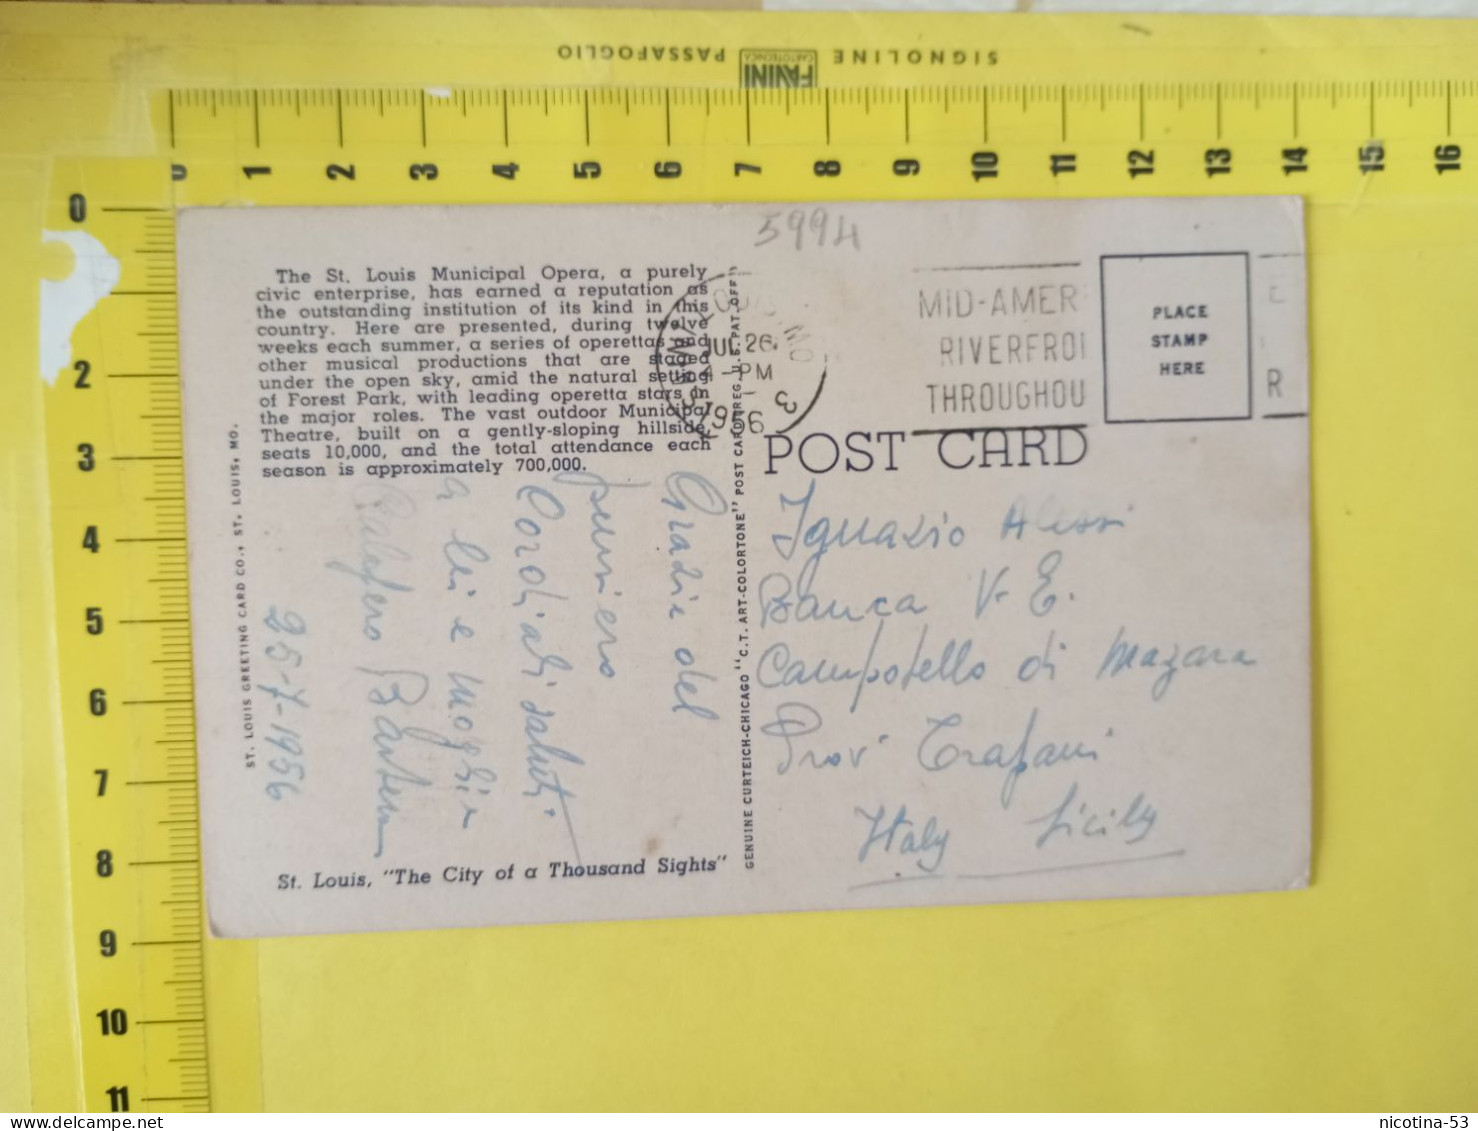 SIGNOLINE FANINI CARTOTECNICA PASSAFOGLIO
0 1 2 3 4 5 6 7 8 9 10 11 12 13 14 15 16
0
2
3
4
5
6
7
8
9
10
11
5994
The St. Louis Municipal Opera, a purely
civic enterprise, has earned a reputation as
the outstanding institution of its kind in this
country. Here are presented, during twelve
weeks each summer, a series of operettas and
other musical productions that are staged
under the open sky, amid the natural setting
of Forest Park, with leading operetta stars in
the major roles. The vast outdoor Municipal
Theatre, built on a gently-sloping hillside,
seats 10,000, and the total attendance each
season is approximately 700,000.
Grazie del
pensiero
Cordiali saluti
a lei e moglie
Calogero
25-7-1956
St. Louis, "The City of a Thousand Sights"
ST. LOUIS GREETING CARD CO., ST. LOUIS, MO.
GENUINE CURTEICH-CHICAGO "C.T. ART-COLORTONE" POST CARD (REG. U.S. PAT. OFF.)
JUL 26
PM
1956
3
MID-AMER
RIVERFRO
THROUGHOU
E
R
PLACE
STAMP
HERE
POST CARD
Ignazio Alessi
Banca V. E.
Campobello di Mazara
Prov Trapani
Italy Sicily
nicotina-53